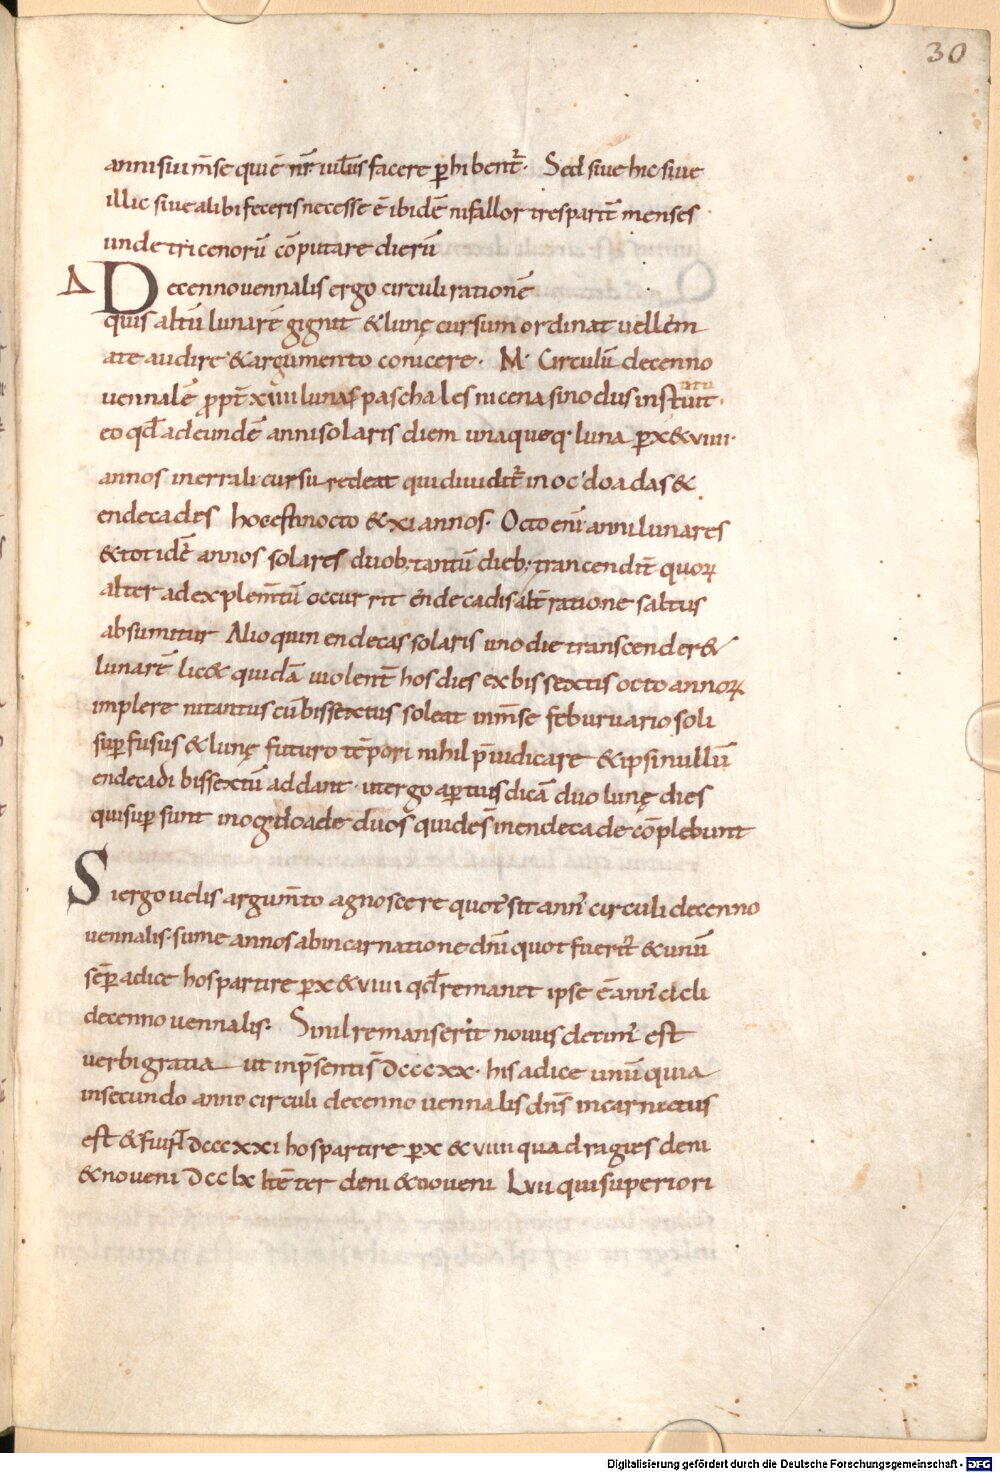 30
anni sui m̄se qui ē nr̄ iul̄ius facere ꝑhibent᷑. Sed siue hic siue
illic siue alibi feceris necesse ē ibidē ni fallor tres part̄ menses
unde tricenorū cōputare dierū
Δ Decennouennalis ergo circuli rationē
quis altū lunarē gignit & lunę cursum ordinat uellem
a te audire & argumento conicere. M. Circulū decenno
uennalē ꝓpt̄ xiiii lunas paschales nicena sinodus instituit
eo qd̄ ad eundē anni solaris diem unaqueq· luna ꝑ x & viiii.
annos inerrali cursu redeat qui diuidit᷑ in ocdoadas &
endecades hoc est in octo & xi annos. Octo eni anni lunares
& totidē annos solares duob; tantū dieb; trancendit̄ quoꝝ
alter ad explem̄tū occurrit endecadis alt̄ ratione saltus
absumitur Alioquin endecas solaris uno die transcender&
lunarē lic& quidā uiolent̄ hos dies ex bissextis octo annoꝝ
implere nitantus cū bissextus soleat in m̄se feburuario soli
suꝑfusus & lunę futuro tēpori nihil p̄iudicare & ipsi nullū
endecadi bissextū addant. ut ergo aꝑtius dicā duo lunę dies
qui suꝑsunt in ogdoade duos qui des̄ in endecade cōplebunt
Si ergo uelis argum̄to agnoscere quot᷑ sit ann᷑ circuli decenno
uennalis. sume annos ab incarnatione dn̄i quot fuerit᷑ & unū
sēꝑ adice hos partire ꝑ x & viiii qd̄ remanet ipse ē ann᷑ cicli
decennouennalis. Si nil remanserit nonus decim᷑ est
uerbi gratia ut in p̄sentis dcccxx. his adice unū quia
in secundo anno circuli decennouennalis dn̄s incarnatus
est & fiunt dcccxxi hos partire ꝑ x & viiii quadragies deni
& noueni dcclx Itē ter deni & noueni Lvii qui superiori
Digitalisierung gefördert durch die Deutsche Forschungsgemeinschaft - DFG